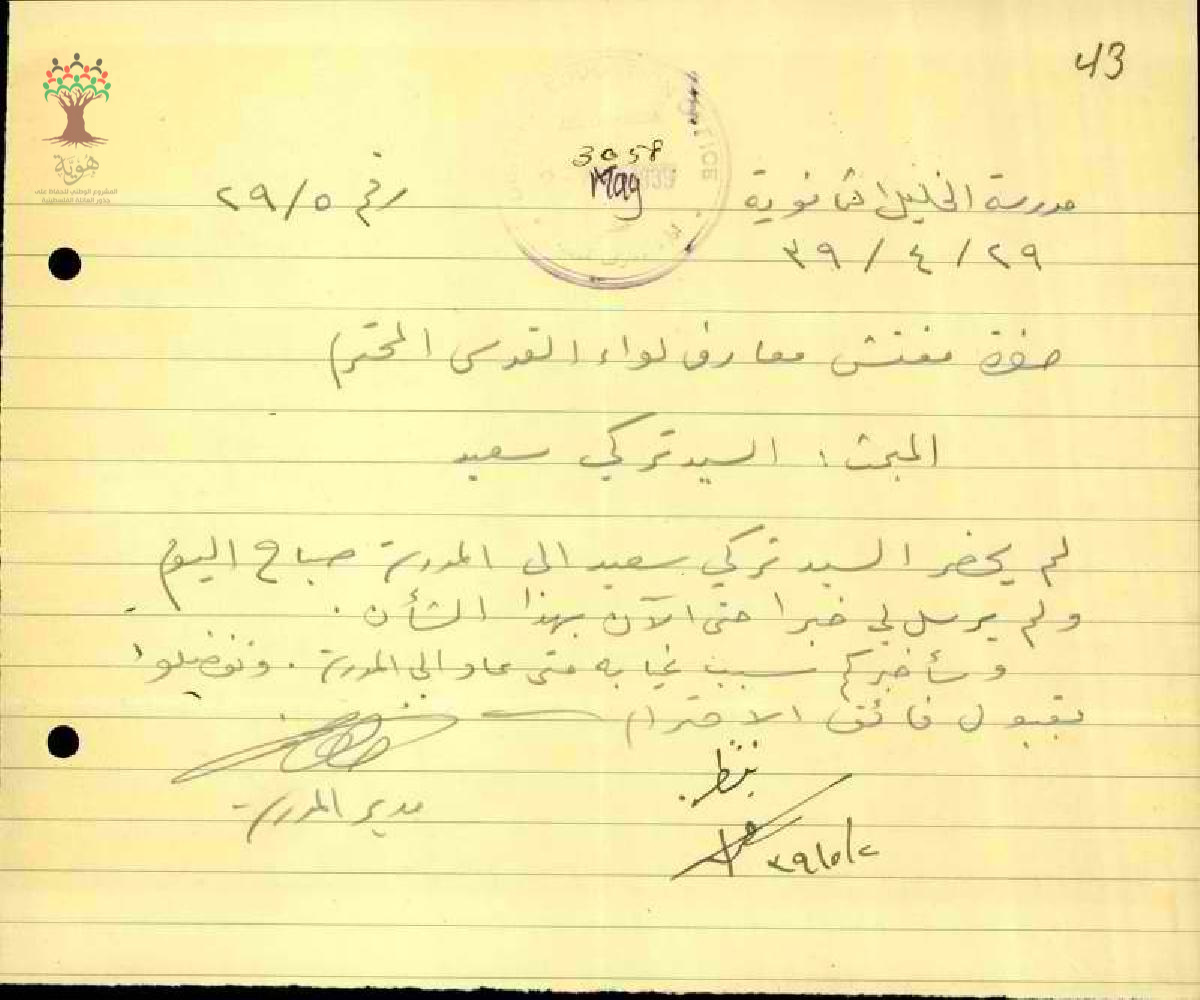 43
هوية
المشروع الوطني للحفاظ على
جذور العائلة الفلسطينية
3058
May
مدرسة الخليل الثانوية
رقم ٢٩/٥
٣٩ / ٤ / ٢٩
حضرة مفتش معارف لواء القدس المحترم
المبحث : السيد تركي سعيد
لم يحضر السيد تركي سعيد الى المدرسة صباح اليوم
ولم يرسل لي خبرا حتى الآن بهذا الشأن .
وسأخبركم سبب غيابه متى عاد الى المدرسة . وتفضلوا
بقبول فائق الاحترام
مدير المدرسة
ينتظر
٣٩/٥/٢